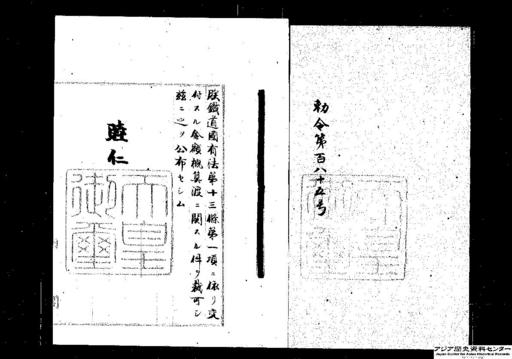 勅令第百八十五号
朕鐵道國有法第十三條第一項ニ依リ交
付スル金額概算渡ニ関スル件ヲ裁可シ
茲ニ之ヲ公布セシム
睦仁
天皇御璽
アジア歴史資料センター
Japan Center for Asian Historical Records